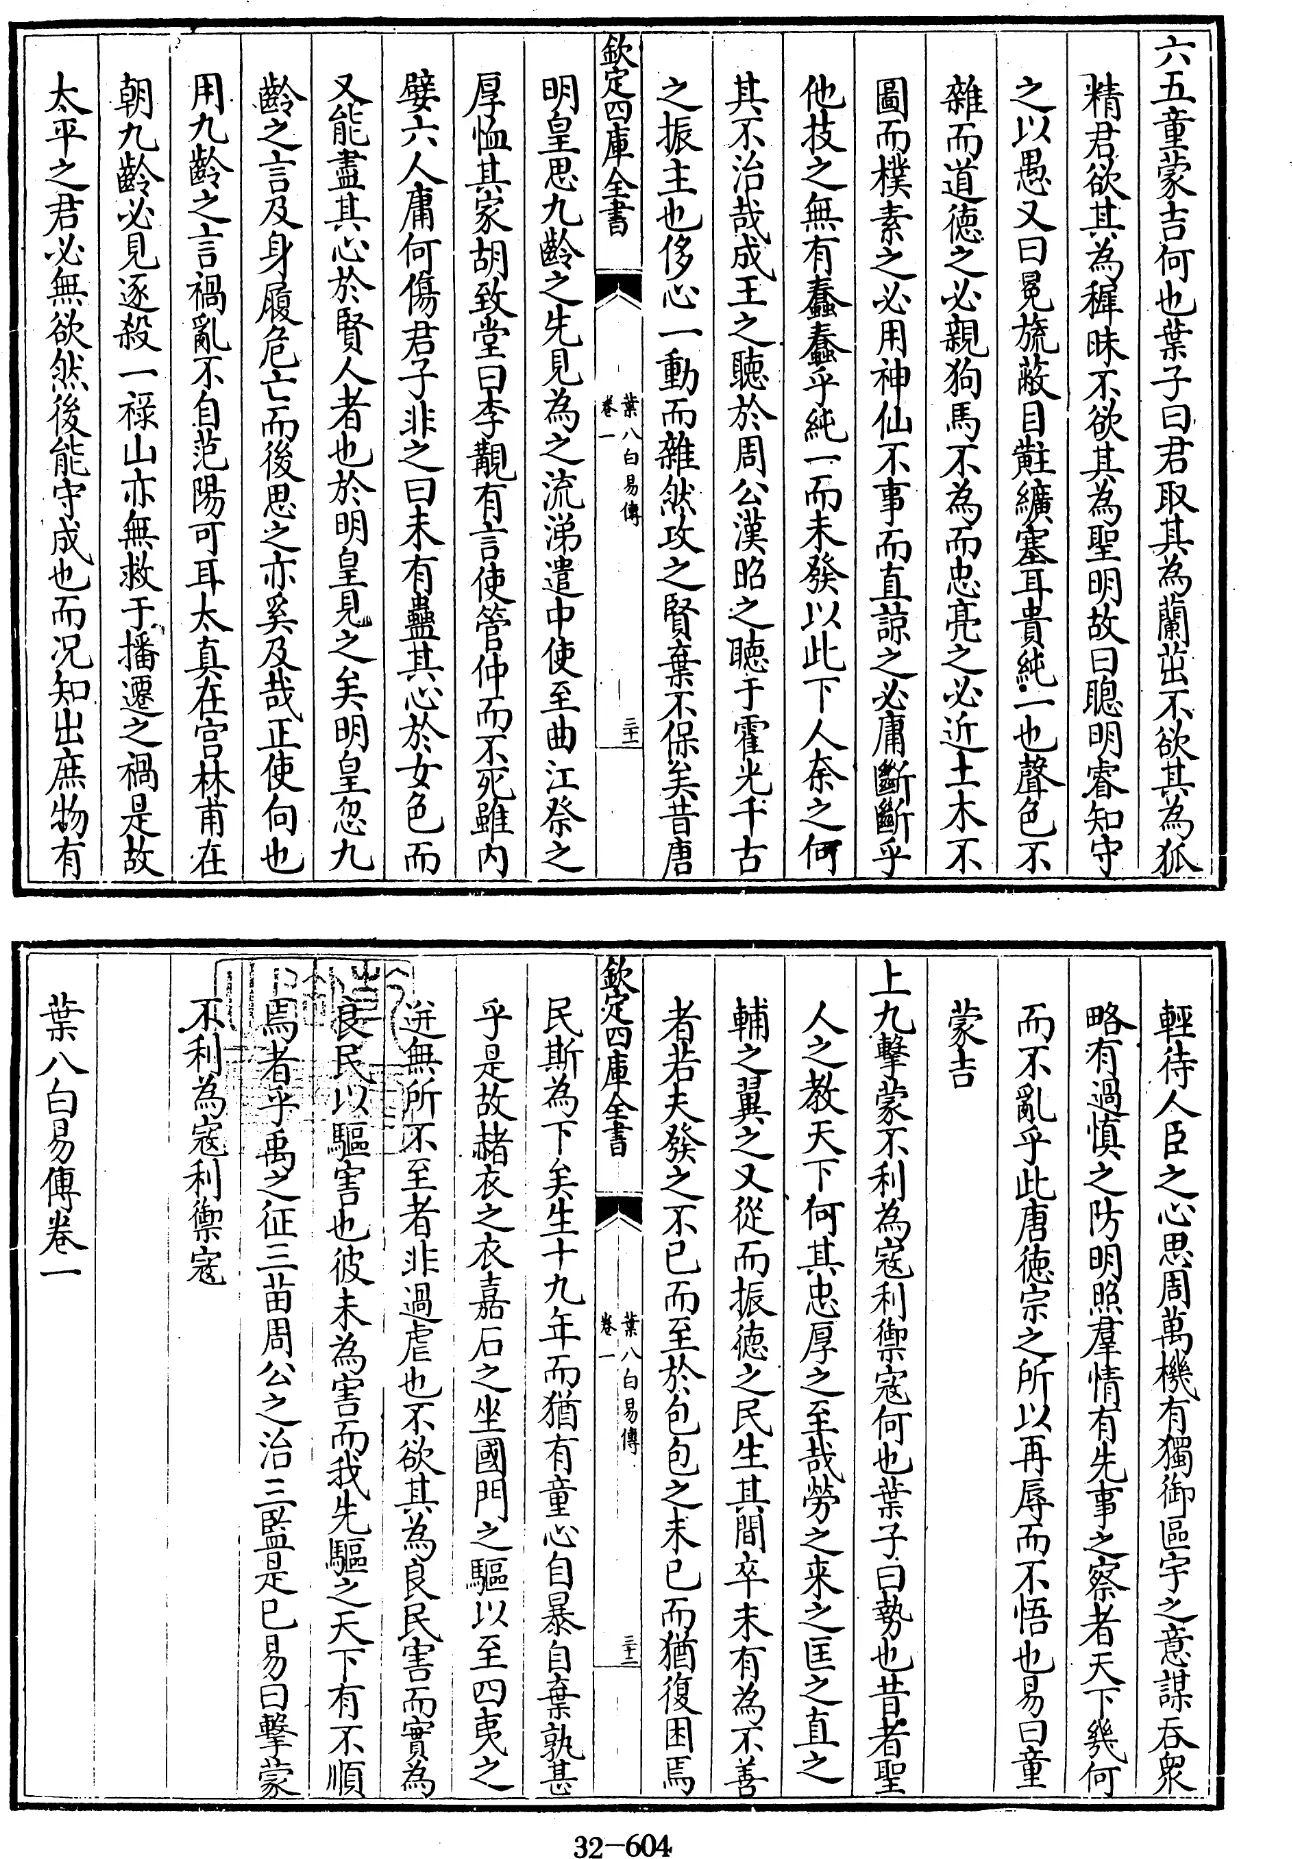 六五童蒙吉何也葉子曰君取其為蘭茁不欲其為狐
精君欲其為穉昧不欲其為聖明故曰聰明睿知守
之以愚又曰冕旒蔽目黈纊塞耳貴純一也聲色不
雜而道德之必親狗馬不為而忠亮之必近土木不
圖而樸素之必用神仙不事而直諒之必庸斷斷乎
他技之無有蠢蠢乎純一而未發以此下人奈之何
其不治哉成王之聽於周公漢昭之聽于霍光千古
之振主也侈心一動而雜然攻之賢棄不保矣昔唐
欽定四庫全書
葉八白易傳
卷一
三十一
明皇思九齡之先見為之流涕遣中使至曲江祭之
厚恤其家胡致堂曰李覯有言使管仲而不死雖内
嬖六人庸何傷君子非之曰未有蠱其心於女色而
又能盡其心於賢人者也於明皇見之矣明皇忽九
齡之言及身履危亡而後思之亦奚及哉正使向也
用九齡之言禍亂不自范陽可耳太真在宫林甫在
朝九齡必見逐殺一祿山亦無救于播遷之禍是故
太平之君必無欲然後能守成也而况知出庶物有
輕待人臣之心思周萬機有獨御區宇之意謀吞衆
略有過慎之防明照羣情有先事之察者天下幾何
而不亂乎此唐德宗之所以再辱而不悟也易曰童
蒙吉
上九擊蒙不利為寇利禦寇何也葉子曰勢也昔者聖
人之教天下何其忠厚之至哉勞之来之匡之直之
輔之翼之又從而振德之民生其間卒未有為不善
者若夫發之不已而至於包包之未已而猶復困焉
欽定四庫全書
葉八白易傳
卷一
三十二
民斯為下矣生十九年而猶有童心自暴自棄孰甚
乎是故赭衣之衣嘉石之坐國門之驅以至四夷之
迸無所不至者非過虐也不欲其為良民害而實為
良民以驅害也彼未為害而我先驅之天下有不順
焉者乎禹之征三苗周公之治三監是已易曰擊蒙
不利為寇利禦寇
葉八白易傳卷一
32-604